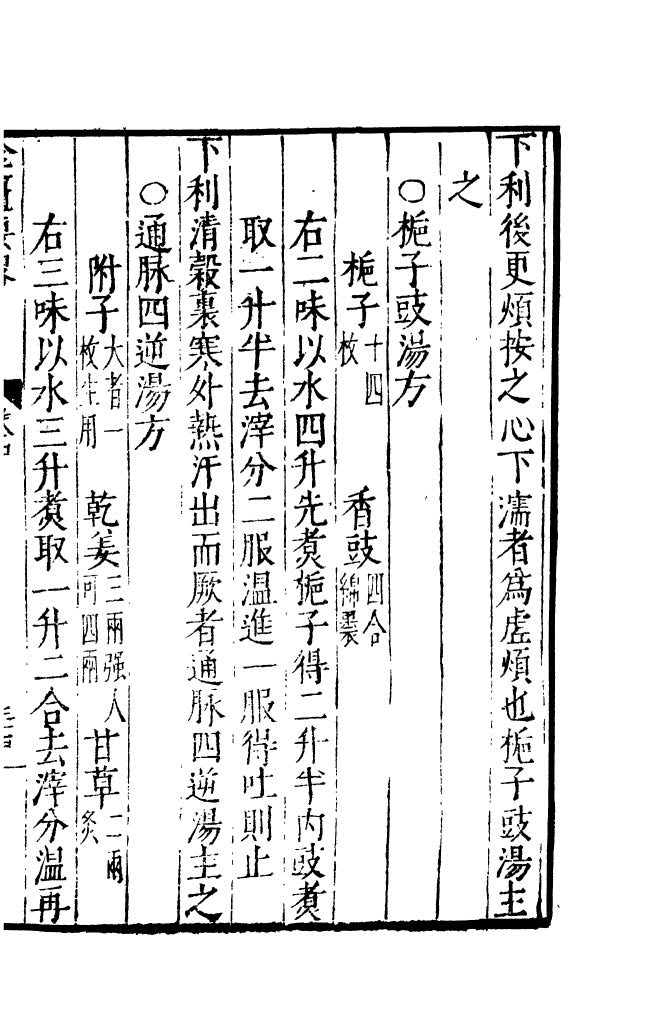 下利後更煩按之心下濡者為虛煩也梔子豉湯主
之
○梔子豉湯方
梔子十四枚 香豉四合綿裹
右二味以水四升先煑梔子得二升半內豉煑
取一升半去滓分二服温進一服得吐則止
下利清穀裏寒外熱汗出而厥者通脉四逆湯主之
○通脉四逆湯方
附子大者一枚生用 乾姜三兩强人可四兩 甘草二兩炙
右三味以水三升煑取一升二合去滓分温再